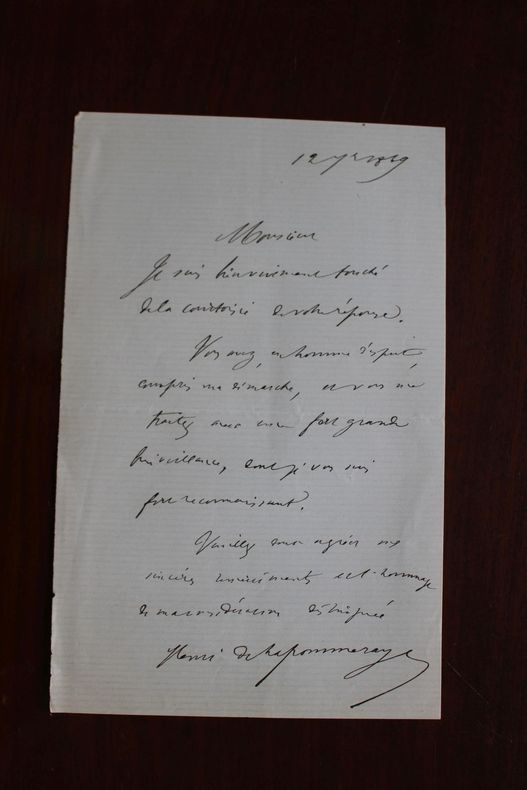 12 1869
Monsieur
Je suis bien vivement touché
de la courtoisie de votre réponse.
Vous avez, en homme d'esprit
compris ma démarche, et vous me
traitez avec une fort grande
bienveillance, dont je vous suis
fort reconnaissant.
Veuillez donc agréer mes
sincères remerciments et l'hommage
de ma considération distinguée
Henri de Lapommeraye